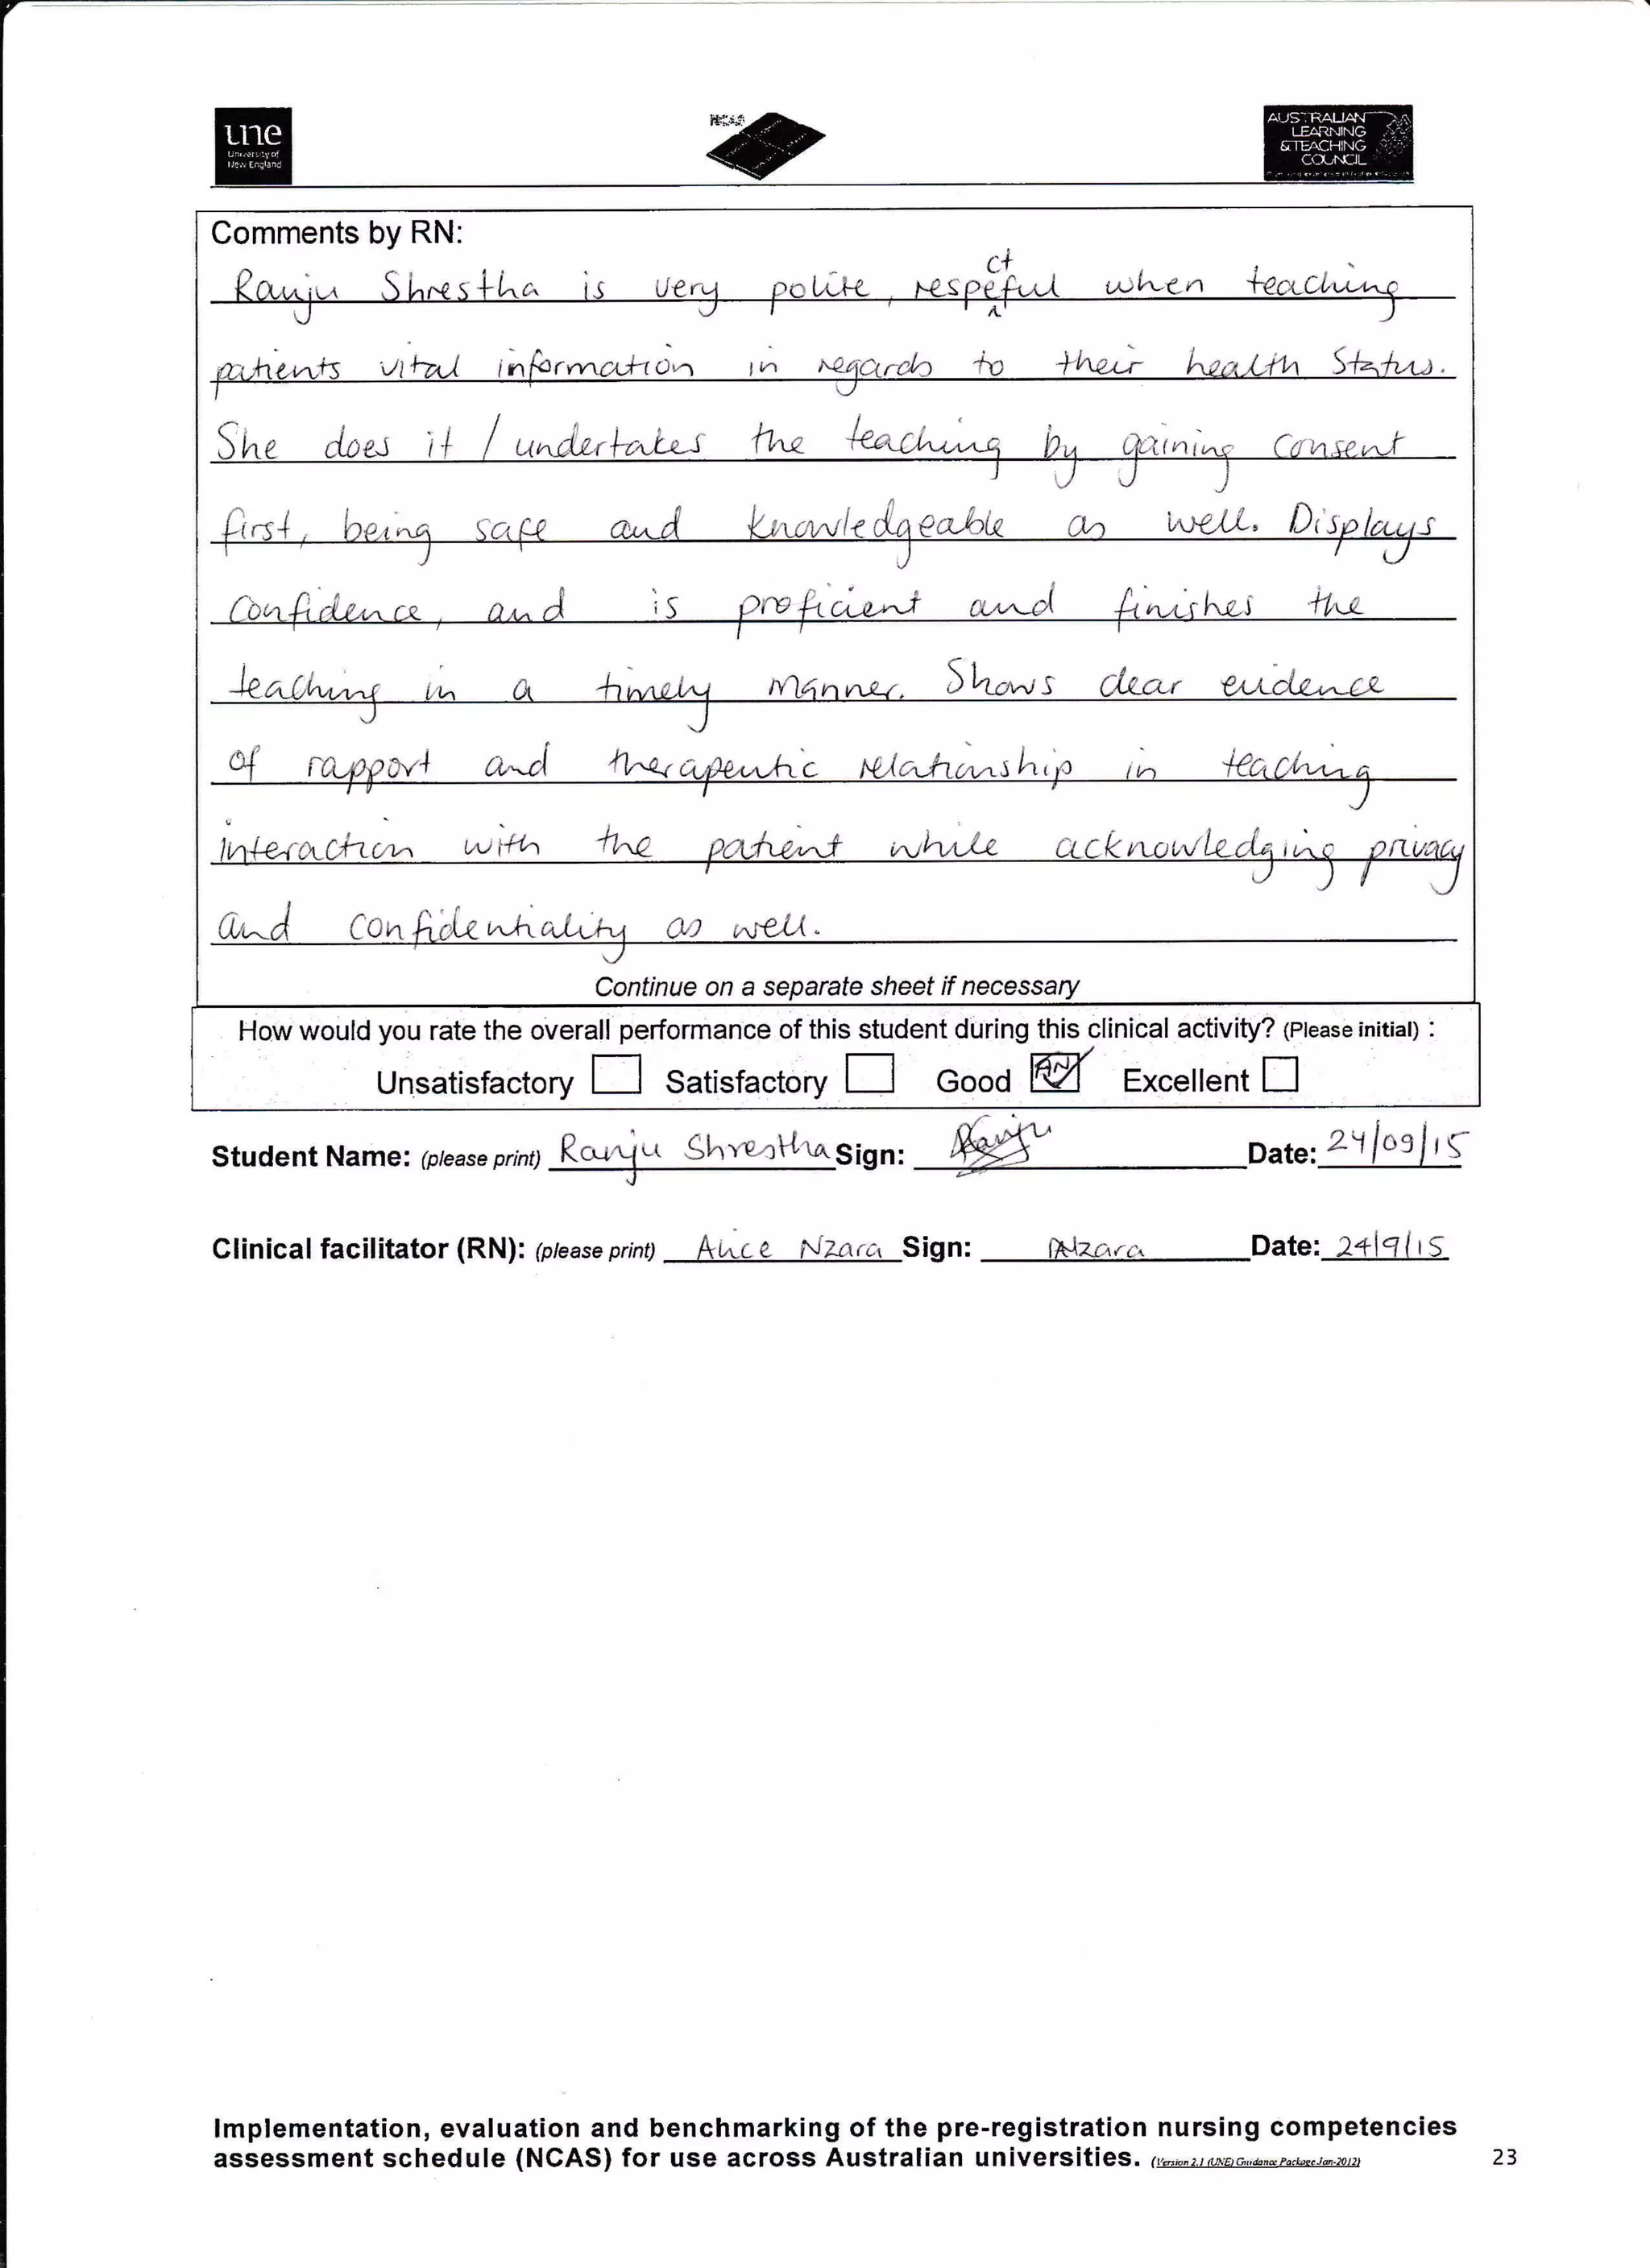 une
University of
New England
NCAS
AUSTRALIAN
LEARNING
& TEACHING
COUNCIL
Comments by RN:
Ranju Shrestha is very polite, respectful when teaching
patients vital information in regards to their health status.
She does it / undertakes the teaching by gaining consent
first, being safe and knowledgeable as well. Displays
Confidence, and is proficient and finishes the
teaching in a timely manner. Shows clear evidence
of rapport and therapeutic relationship in teaching
interaction with the patient while acknowledging privacy
and confidentiality as well.
Continue on a separate sheet if necessary
How would you rate the overall performance of this student during this clinical activity? (Please initial) :
Unsatisfactory Satisfactory Good AN Excellent
Student Name: (please print) Ranju Shrestha Sign: Ranju Date: 24/09/15
Clinical facilitator (RN): (please print) Alice Nzara Sign: ANzara Date: 24/9/15
Implementation, evaluation and benchmarking of the pre-registration nursing competencies
assessment schedule (NCAS) for use across Australian universities. (Version 2.1 (UNE) Guidance Package Jan-2012) 23